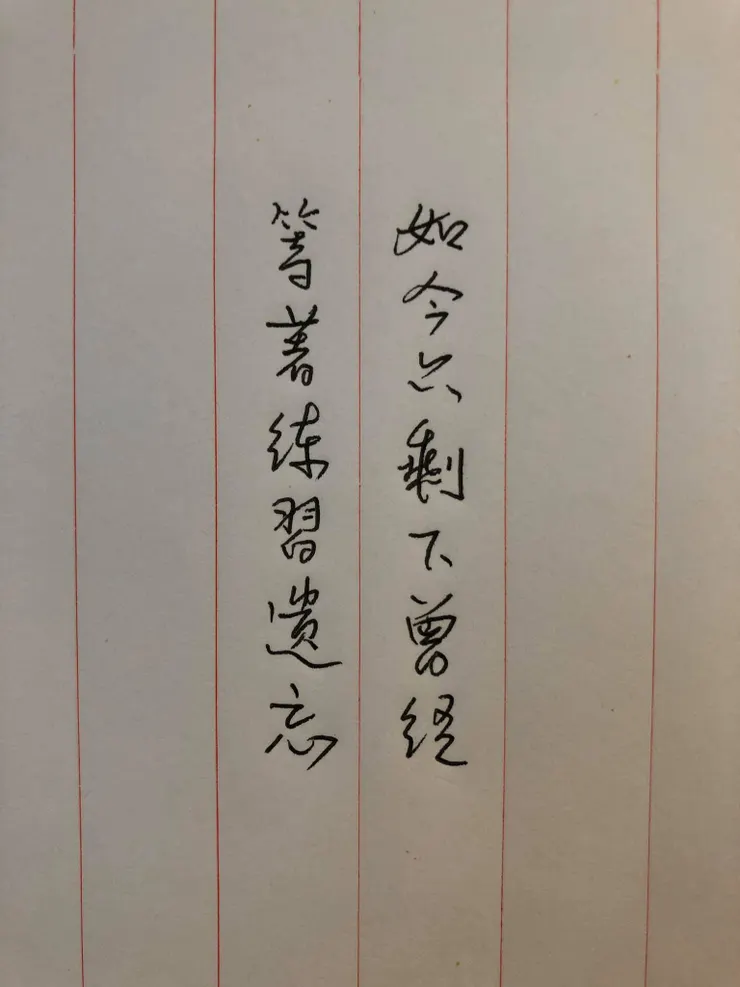 如今只剩下曾经
等著练習遗忘